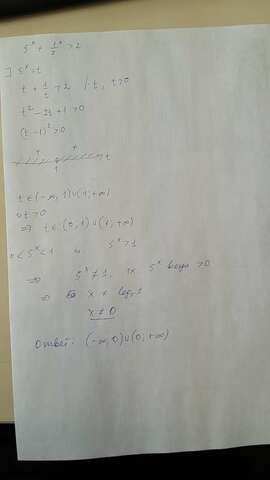 5^x + 1/5^x > 2
] 5^x = t
t + 1/t > 2 | · t, t > 0
t² - 2t + 1 > 0
(t-1)² > 0
+ +
1 t
t ∈ (-∞, 1) ∪ (1; +∞)
t > 0
⇒ t ∈ (0, 1) ∪ (1; +∞)
0 < 5^x < 1 и 5^x > 1
⇒ 5^x ≠ 1, 5^x всегда > 0
⇒ x ≠ log₅ 1
x ≠ 0
Ответ: (-∞, 0) ∪ (0, +∞)